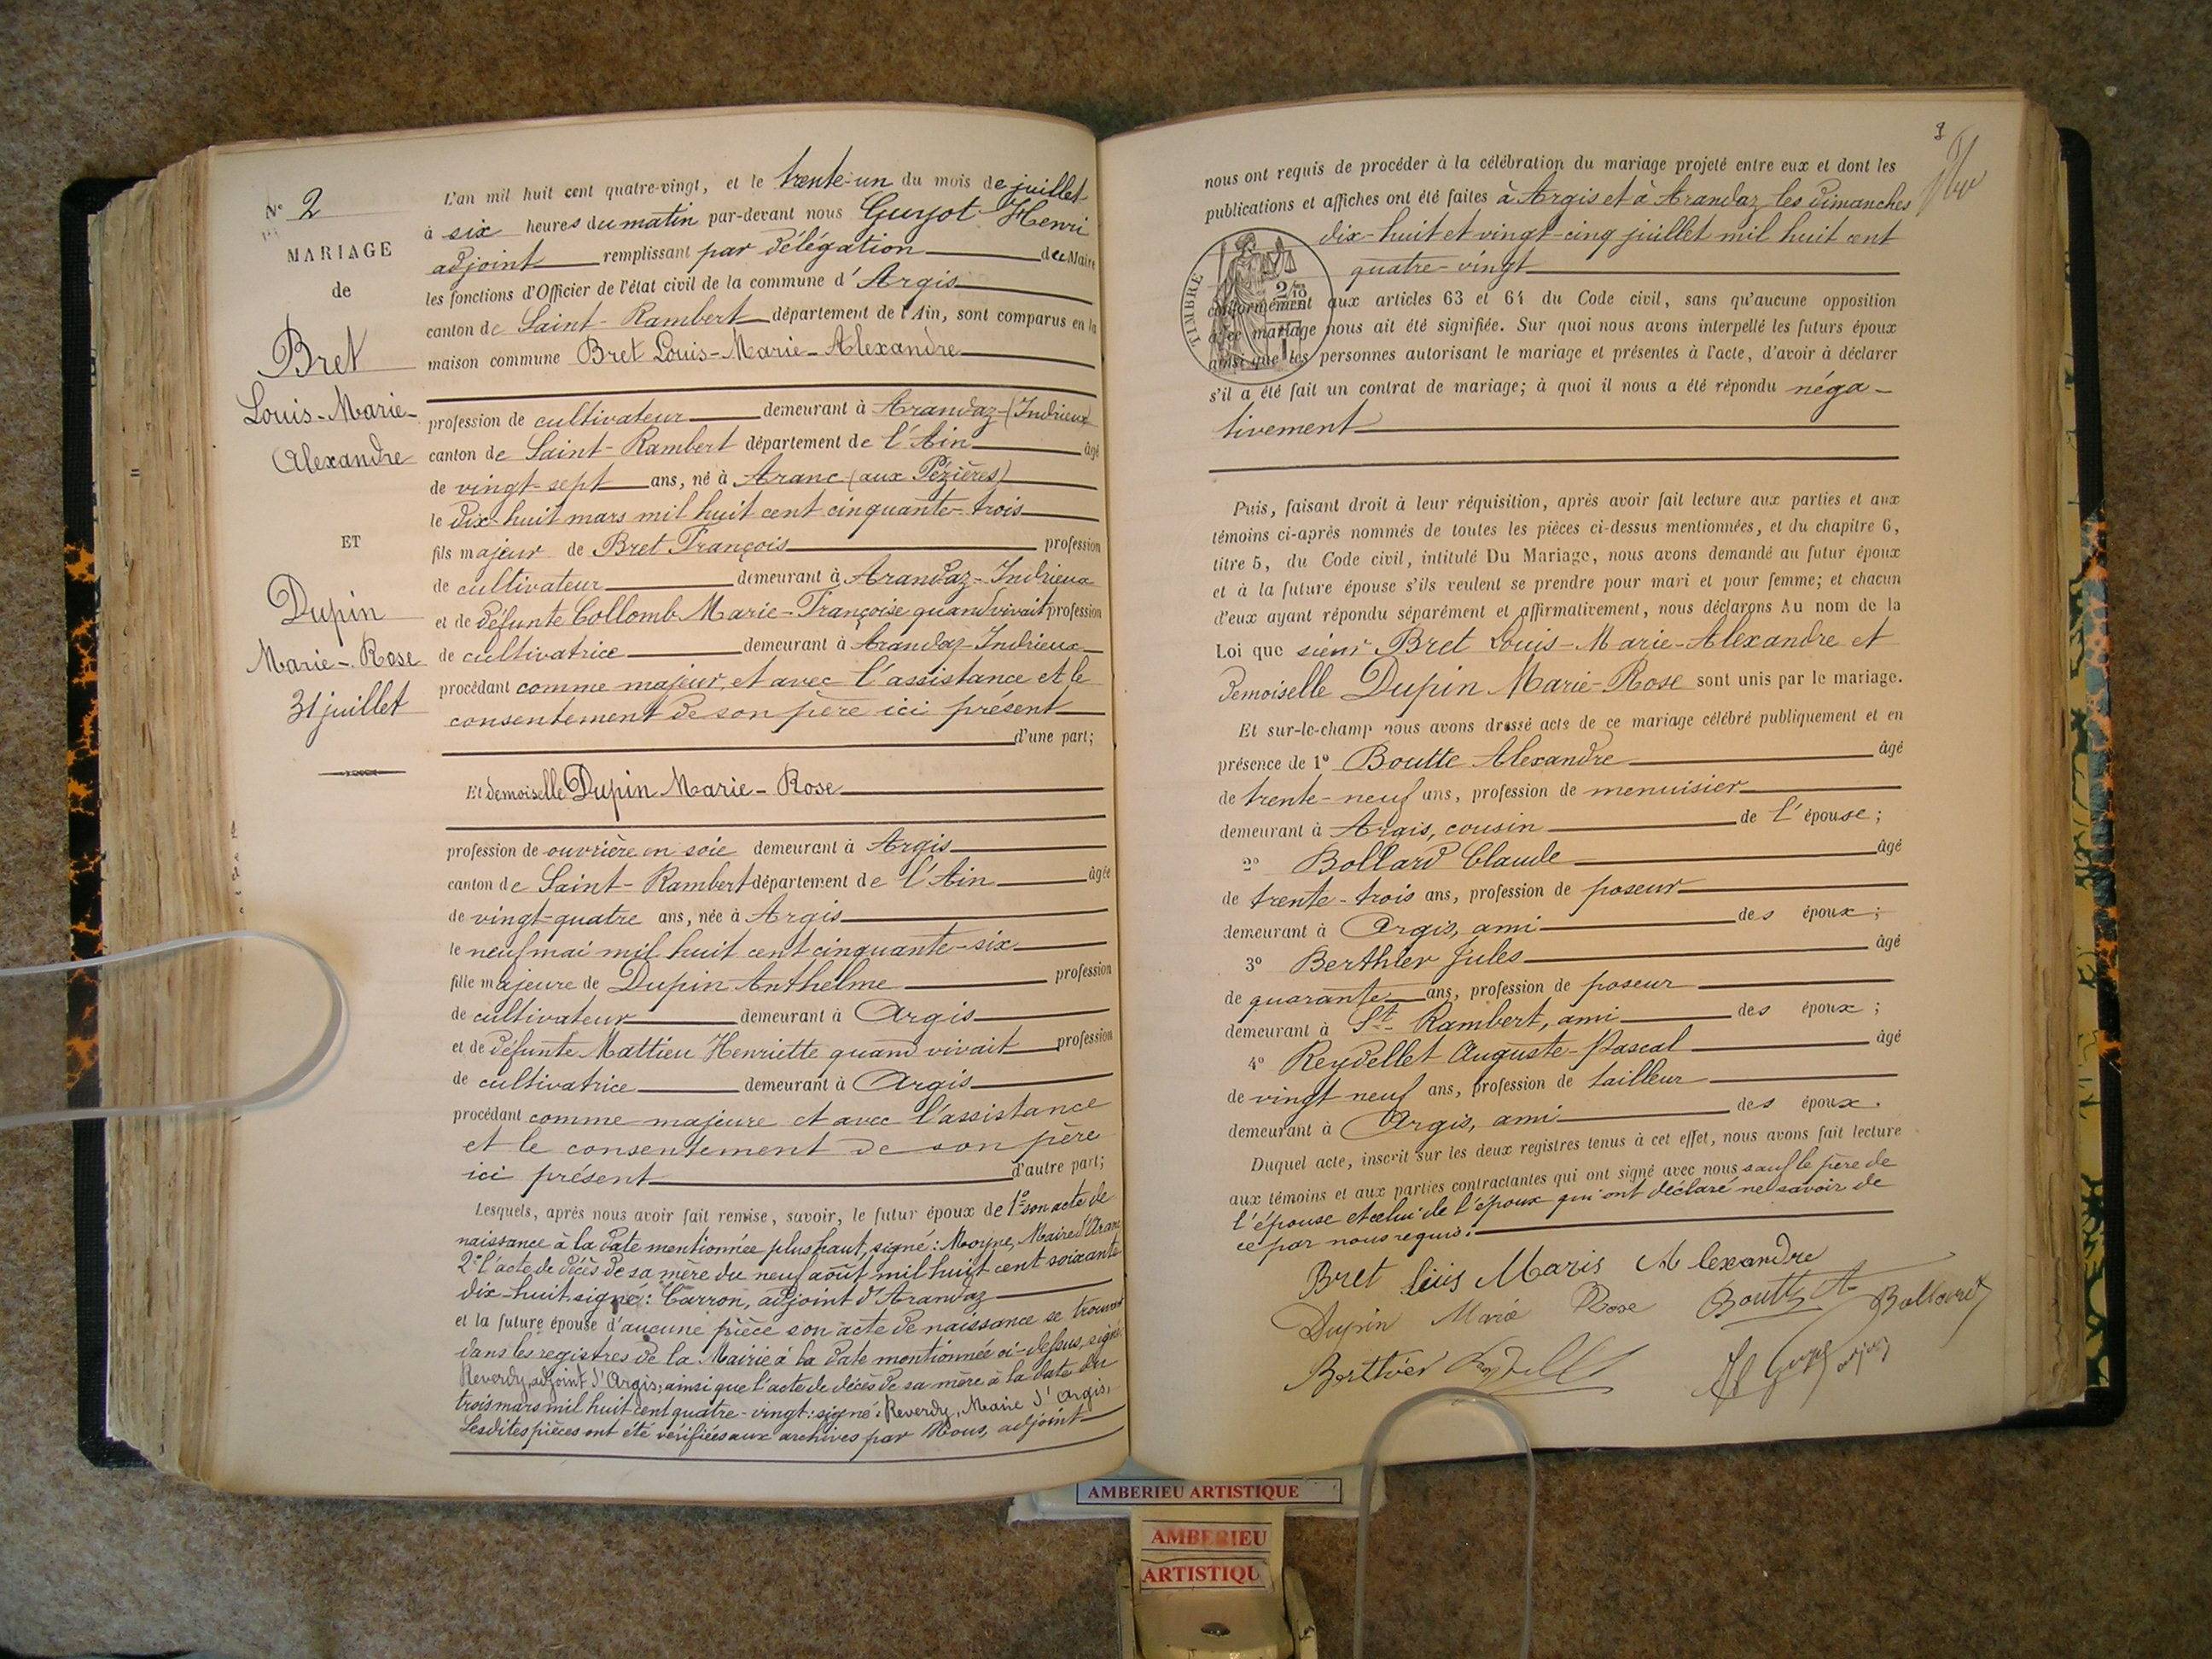 N° 2
MARIAGE
de
Bret
Louis-Marie-
Alexandre
ET
Dupin
Marie-Rose
31 juillet
L'an mil huit cent quatre-vingt, et le trente-un du mois de juillet
à six heures du matin par-devant nous Guyot Henri
adjoint remplissant par délégation du Maire
les fonctions d'Officier de l'état civil de la commune d'Argis
canton de Saint-Rambert département de l'Ain, sont comparus en la
maison commune Bret Louis-Marie-Alexandre
profession de cultivateur demeurant à Arandaz-(Indrieux)
canton de Saint-Rambert département de l'Ain âgé
de vingt-sept ans, né à Aranc (aux Pézières)
le dix-huit mars mil huit cent cinquante-trois
fils majeur de Bret François profession
de cultivateur demeurant à Arandaz-Indrieux
et de défunte Collomb Marie-Françoise quand vivait profession
de cultivatrice demeurant à Arandaz-Indrieux
procédant comme majeur, et avec l'assistance et le
consentement de son père ici présent
d'une part;
Et demoiselle Dupin Marie-Rose
profession de ouvrière en soie demeurant à Argis
canton de Saint-Rambert département de l'Ain âgée
de vingt-quatre ans, née à Argis
le neuf mai mil huit cent cinquante-six
fille majeure de Dupin Anthelme profession
de cultivateur demeurant à Argis
et de défunte Mattieu Henriette quand vivait profession
de cultivatrice demeurant à Argis
procédant comme majeure et avec l'assistance
et le consentement de son père
ici présent d'autre part;
Lesquels, après nous avoir fait remise, savoir, le futur époux de 1° son acte de
naissance à la date mentionnée plus haut, signé: Moyne, Maire d'Aranc
2° l'acte de décès de sa mère du neuf août mil huit cent soixante
dix-huit signé: Carron, adjoint d'Arandaz
et la future épouse d'aucune pièce son acte de naissance se trouvant
dans les registres de la Mairie à la date mentionnée ci-dessus, signé:
Reverdy, adjoint d'Argis; ainsi que l'acte de décès de sa mère à la date du
trois mars mil huit cent quatre-vingt: signé: Reverdy, Maire d'Argis,
Lesdites pièces ont été vérifiées aux archives par Nous, adjoint
nous ont requis de procéder à la célébration du mariage projeté entre eux et dont les
publications et affiches ont été faites à Argis et à Arandaz les dimanches
dix-huit et vingt-cinq juillet mil huit cent
quatre-vingt
TIMBRE
2/10
conformément aux articles 63 et 64 du Code civil, sans qu'aucune opposition
à ce mariage nous ait été signifiée. Sur quoi nous avons interpellé les futurs époux
ainsi que les personnes autorisant le mariage et présentes à l'acte, d'avoir à déclarer
s'il a été fait un contrat de mariage; à quoi il nous a été répondu néga-
tivement
Puis, faisant droit à leur réquisition, après avoir fait lecture aux parties et aux
témoins ci-après nommés de toutes les pièces ci-dessus mentionnées, et du chapitre 6,
titre 5, du Code civil, intitulé Du Mariage, nous avons demandé au futur époux
et à la future épouse s'ils veulent se prendre pour mari et pour femme; et chacun
d'eux ayant répondu séparément et affirmativement, nous déclarons Au nom de la
Loi que sieur Bret Louis-Marie-Alexandre et
demoiselle Dupin Marie-Rose sont unis par le mariage.
Et sur-le-champ nous avons dressé acte de ce mariage célébré publiquement et en
présence de 1° Boutte Alexandre âgé
de trente-neuf ans, profession de menuisier
demeurant à Argis, cousin de l'épouse;
2° Bollard Claude âgé
de trente-trois ans, profession de poseur
demeurant à Argis, ami des époux;
3° Berthier Jules âgé
de quarante ans, profession de poseur
demeurant à St-Rambert, ami des époux;
4° Reydellet Auguste-Pascal âgé
de vingt neuf ans, profession de tailleur
demeurant à Argis, ami des époux.
Duquel acte, inscrit sur les deux registres tenus à cet effet, nous avons fait lecture
aux témoins et aux parties contractantes qui ont signé avec nous sauf le père de
l'épouse et celui de l'époux qui ont déclaré ne savoir de
ce par nous requis.
Bret léuis Maris Alexandre
Dupin Marie Rose Boutte A Bollard
Berthier
AMBERIEU ARTISTIQUE
AMBERIEU
ARTISTIQU